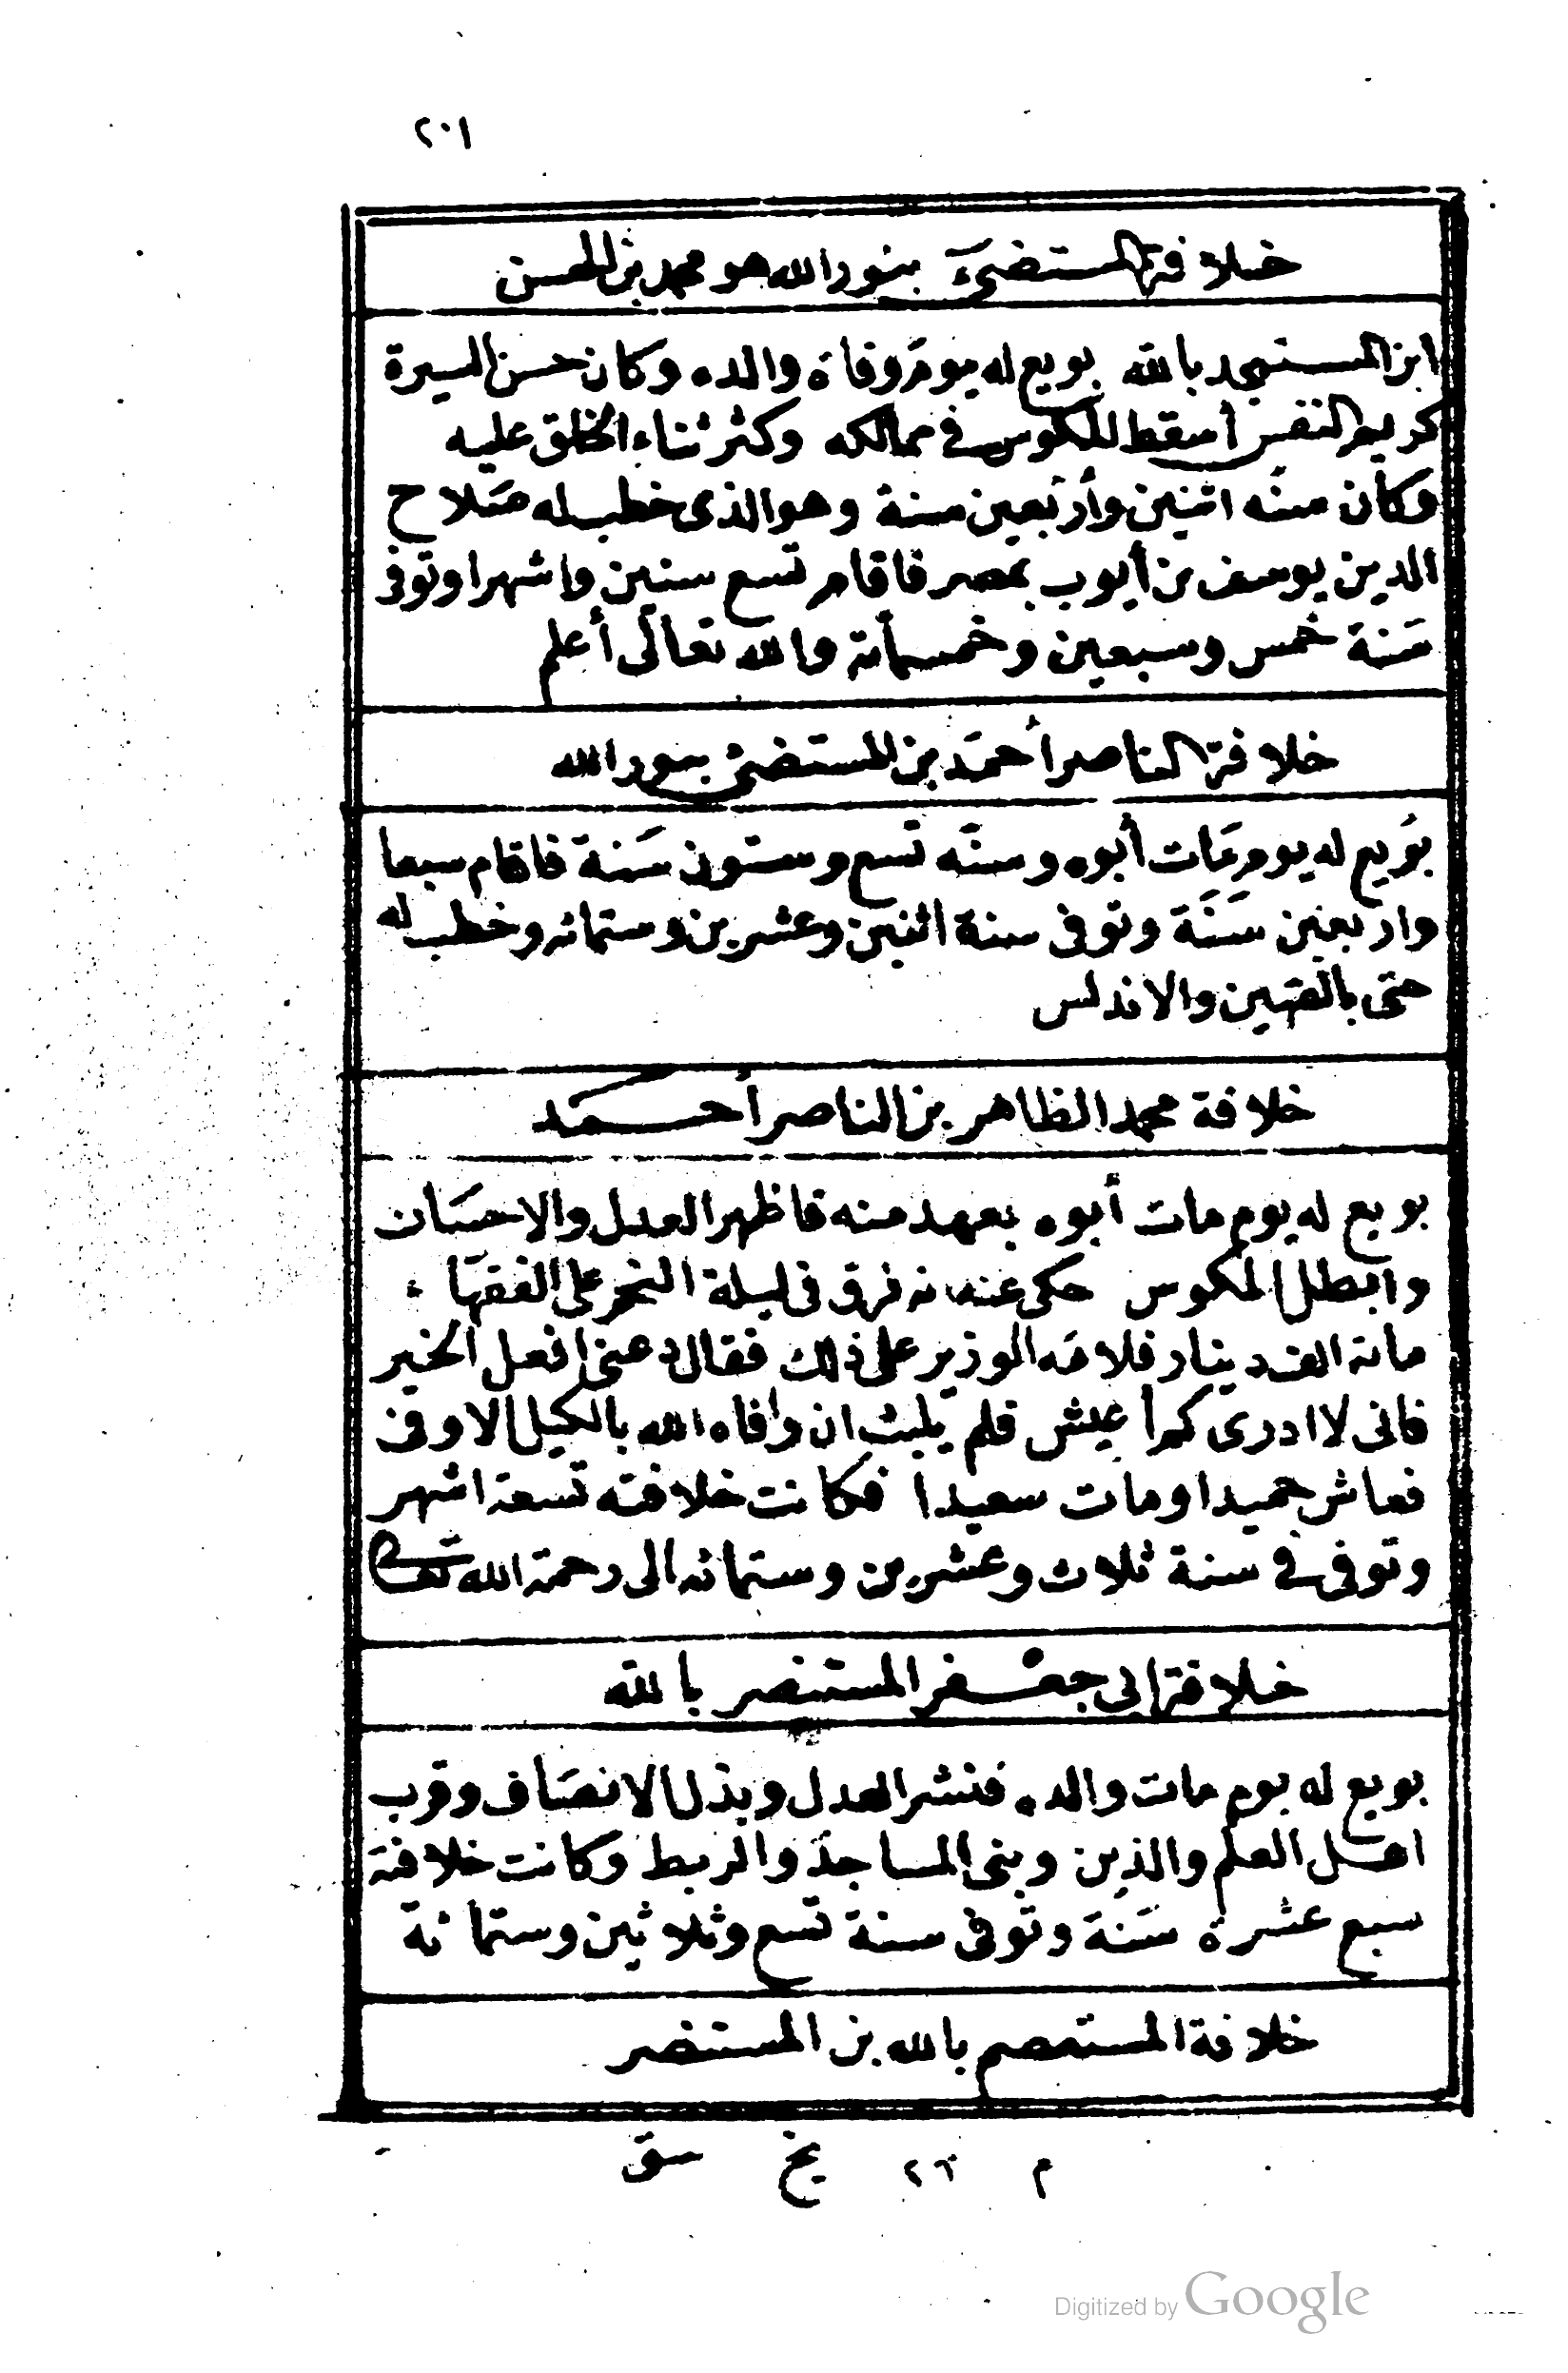 ٢٠١
خلافة المستضىء بنور الله هو محمد بن الحسن
ابن المستنجد بالله بويع له يوم وفاة والده وكان حسن السيرة
كريم النفس أسقط المكوس فى ممالكه وكثر ثناء الخلق عليه
وكان سنه اثنين وأربعين سنة وهو الذى خطب له صلاح
الدين يوسف بن أيوب بمصر فاقام تسع سنين واشهرا وتوفى
سنة خمس وسبعين وخمسمأته والله تعالى أعلم
خلافة الناصر أحمد بن المستضئ بنور الله
بويع له يوم مات أبوه وسنه تسع وستون سنة فاقام سبعا
واربعين سنة وتوفى سنة اثنين وعشرين وستمائه وخطب له
حتى بالصين والاندلس
خلافة محمد الظاهر بن الناصر أحمد
بويع له يوم مات أبوه بعهد منه فاظهر العدل والاحسان
وابطل المكوس حكى عنه انه فرق فى ليلة النحر على الفقهاء
مائة الف دينار فلامه الوزير على ذلك فقال دعنى افعل الخير
فانى لا ادرى كم أعيش فلم يلبث ان وافاه الله بالكيل الاوفى
فعاش حميدا ومات سعيدا فكانت خلافته تسعة اشهر
وتوفى فى سنة ثلاث وعشرين وستمائه الى رحمة الله تعالى
خلافة ابى جعفر المستنصر بالله
بويع له يوم مات والده فنشر العدل وبذل الانصاف وقرب
اهل العلم والدين وبنى المساجد والربط وكانت خلافة
سبع عشرة سنة وتوفى سنة تسع وثلاثين وستمائة
خلافة المستعصم بالله بن المستنصر
م ٢٦ يخ سق
Digitized by Google